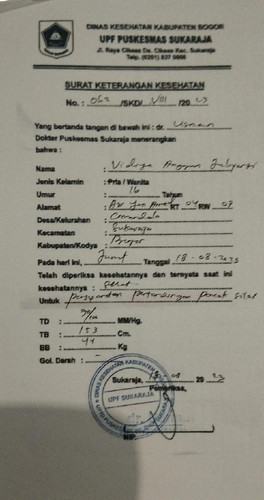 DINAS KESEHATAN KABUPATEN BOGOR
UPF PUSKESMAS SUKARAJA
Jl. Raya Cikeas Ds. Cikeas Kec. Sukaraja
SURAT KETERANGAN KESEHATAN
No. : 062 /SKD/ VIII /20 23
Yang bertanda tangan di bawah ini : dr. Usman
Dokter Puskesmas Sukaraja menerangkan
bahwa :
Nama :
Jenis Kelamin : Pria / Wanita
Umur : 16 Tahun
Alamat : RT 04 RW 07
Desa/Kelurahan :
Kecamatan : Sukaraja
Kabupaten/Kodya : Bogor
Pada hari ini, Jumat Tanggal 18 - 08 -
Telah diperiksa kesehatannya dan ternyata saat ini
kesehatannya : Sehat
Untuk : persyaratan pertandingan pencak silat
TD : MM/Hg.
TB : 153 Cm.
BB : 44 Kg
Gol. Darah : -
Sukaraja, 20 23
Pemeriksa,
UPF SUKARAJA
dr.
NIP.